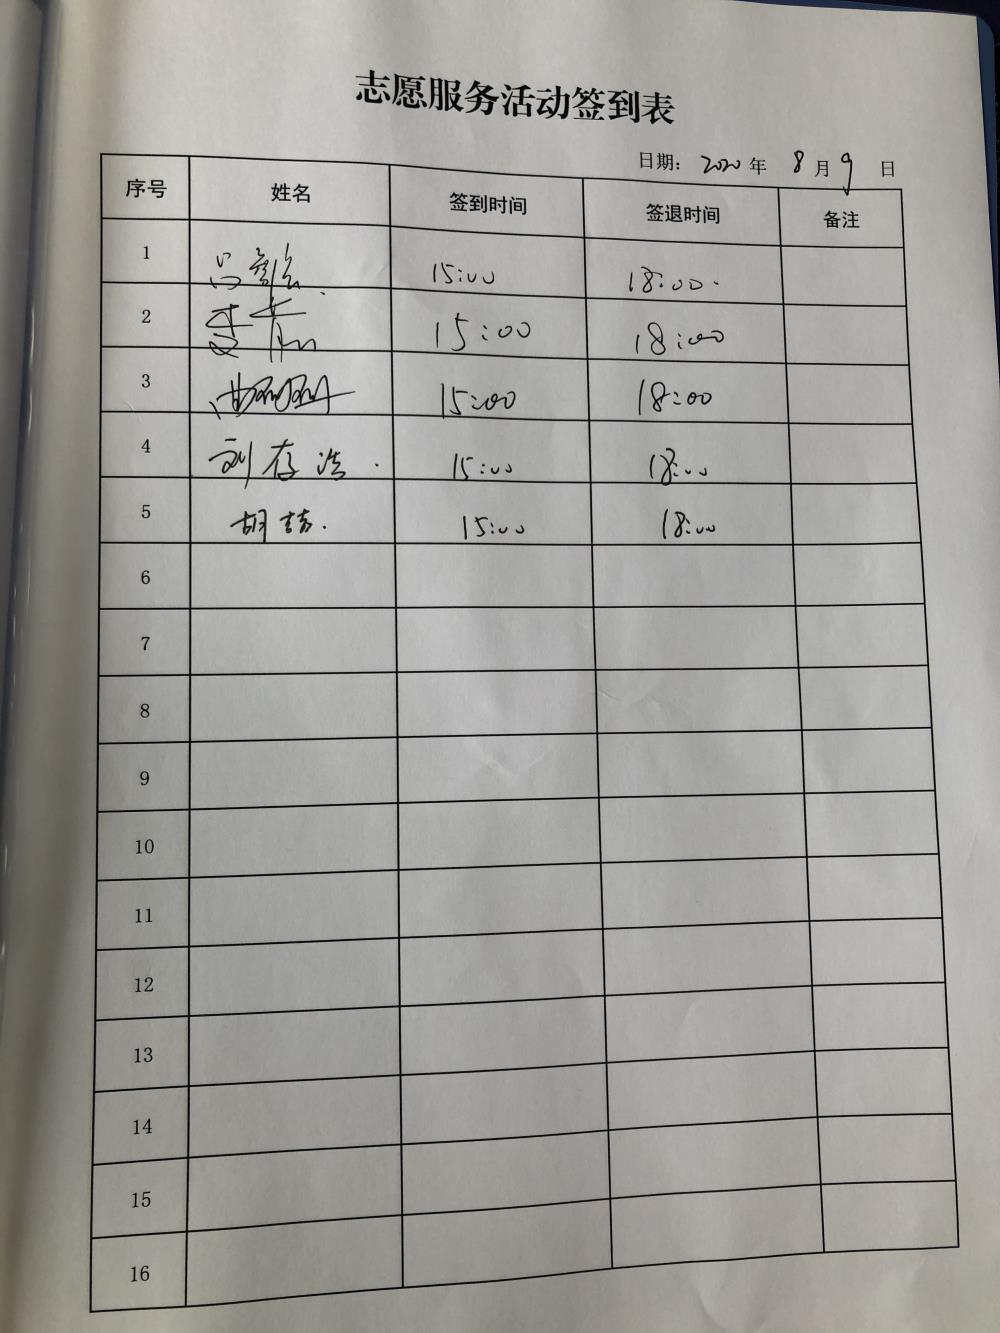 志愿服务活动签到表
日期: 2020 年 8 月 9 日
序号 姓名 签到时间 签退时间 备注
1 15:00 18:00.
2 15:00 18:00
3 15:00 18:00
4 刘存浩. 15:00 18:00
5 胡喆. 15:00 18:00
6
7
8
9
10
11
12
13
14
15
16